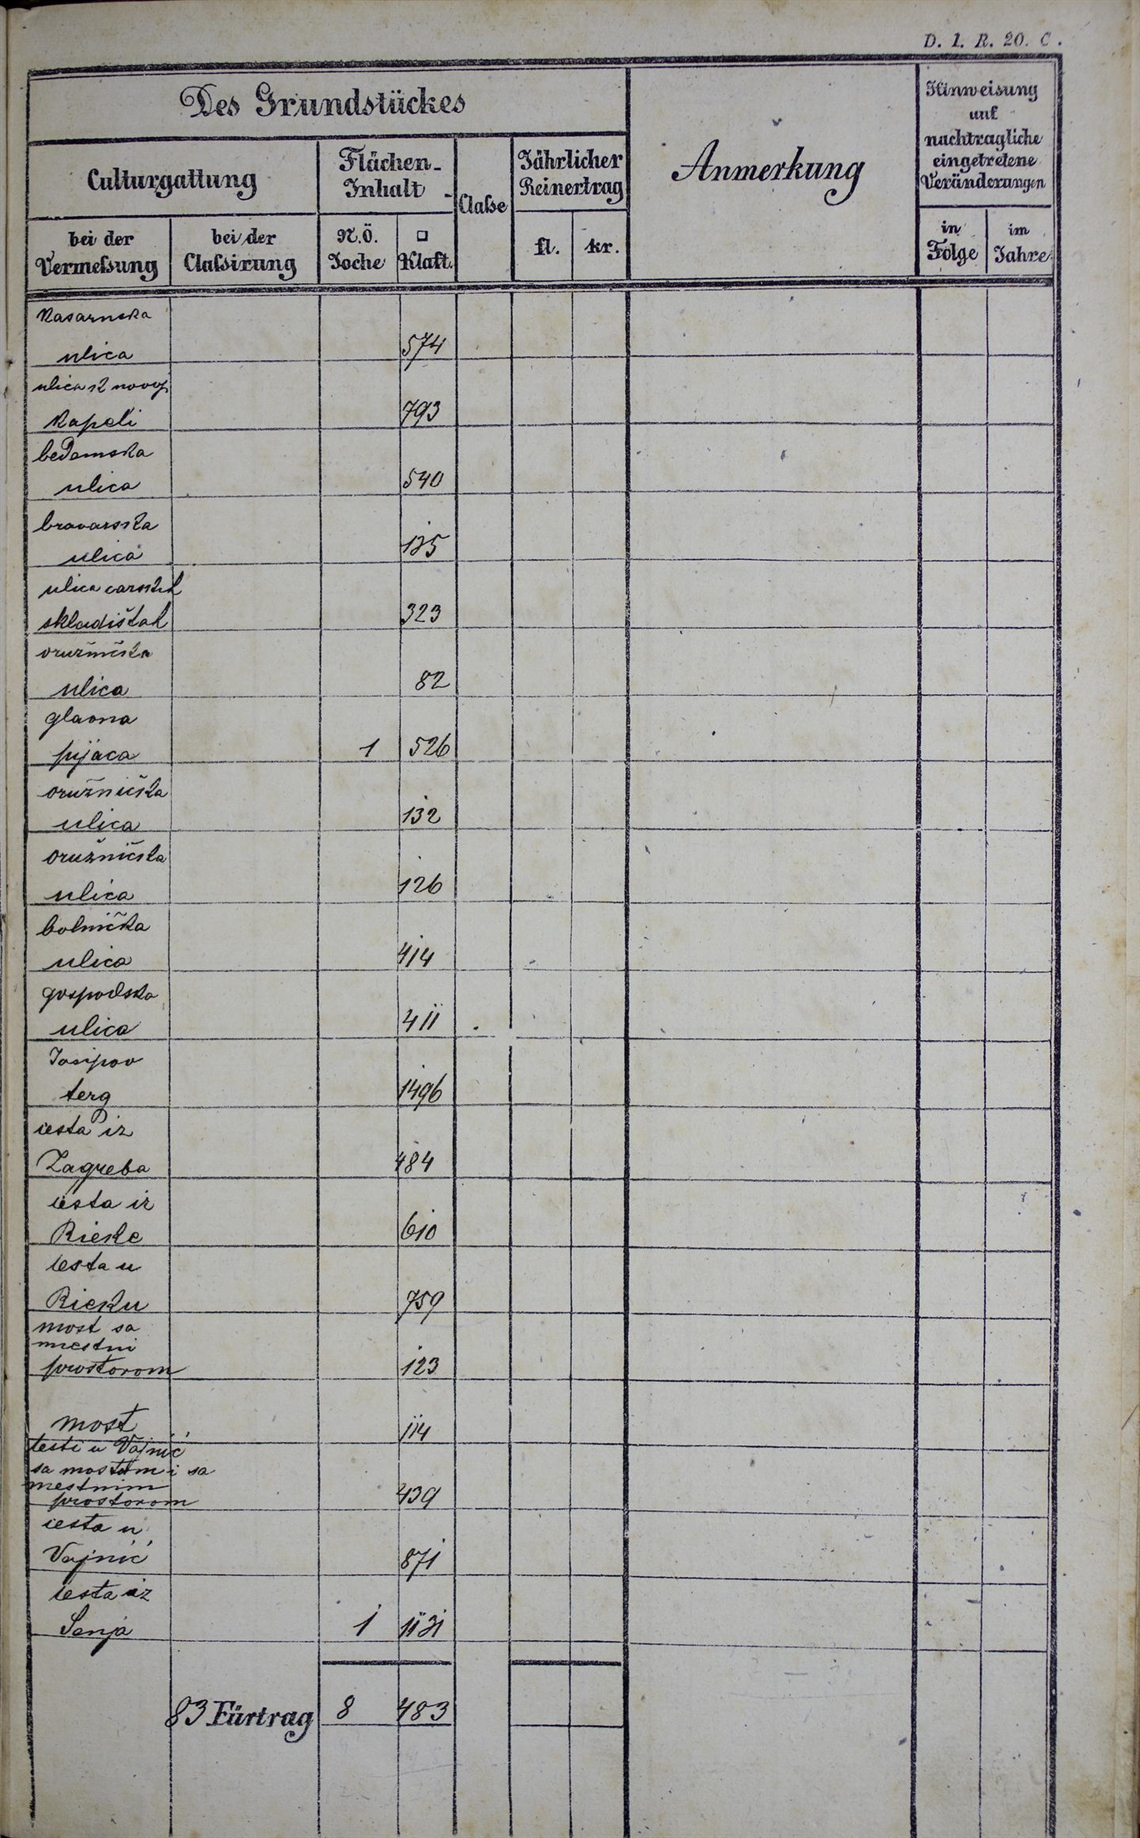 D. 1. R. 20. C.
Des Grundstückes
Anmerkung
Hinweisung
auf
nachtragliche
eingetretene
Veränderungen
Culturgattung
Flächen-
Inhalt
Claße
Jährlicher
Reinertrag
bei der
Vermeßung
bei der
Claßirung
N.Ö.
Joche
□
Klaft.
fl.
kr.
in
Folge
im
Jahre
Kasarnska
ulica 574
ulica k novoj
Kapeli 793
bedemska
ulica 540
bravarska
ulica 135
ulica carskih
skladištah 323
oružnička
ulica 82
glavna
pijaca 1 526
oružnička
ulica 132
oružnička
ulica 126
bolnička
ulica 414
gospodska
ulica 411
Josipov
terg 1496
cesta iz
Zagreba 484
cesta iz
Rieke 610
cesta u
Rieku 759
most sa
mestni
prostorom 123
most 114
cesti u Vojnić
sa mostom i sa
mestnim
prostorom 439
cesta u
Vojnić 871
cesta iz
Senja 1 1131
83 Fürtrag 8 483